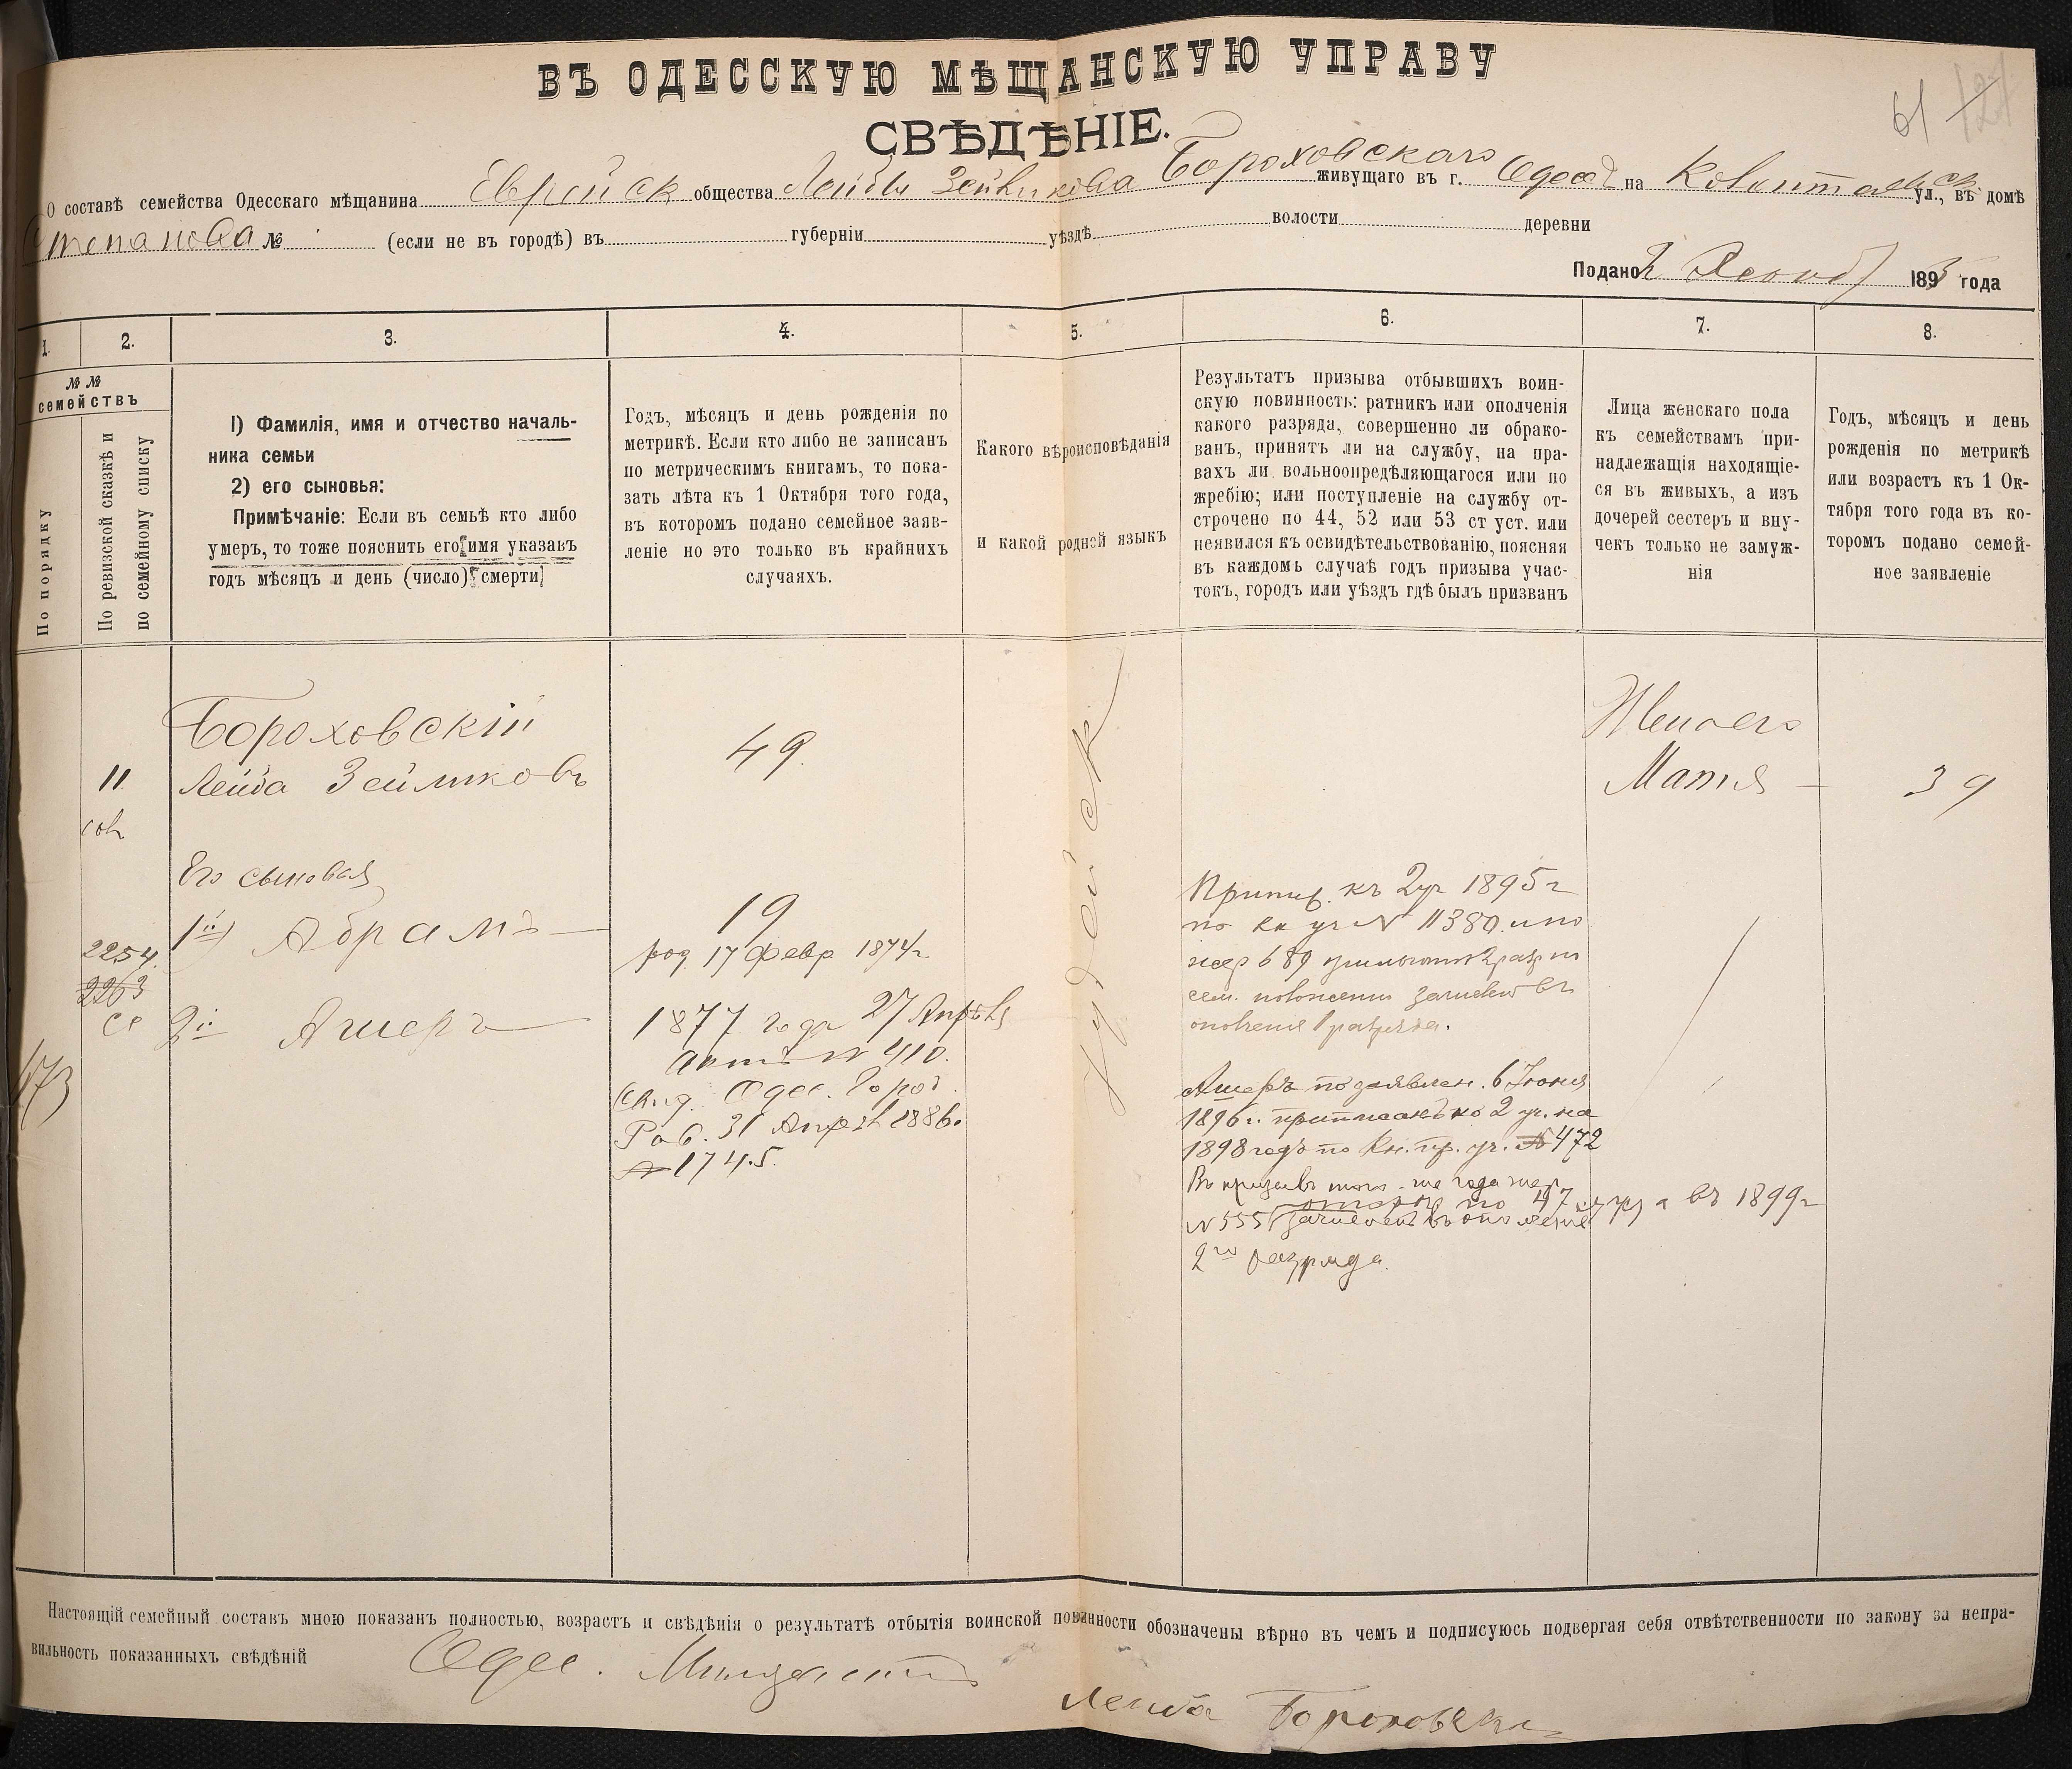 ВЪ ОДЕССКУЮ МѢЩАНСКУЮ УПРАВУ
СВѢДѢНІЕ.
61
121
О составѣ семейства Одесскаго мѣщанина Еврейск общества Лейбы Бороховскаго живущаго въ г. Одессѣ на ул., въ домѣ
Степанова № (если не въ городѣ) въ губерніи уѣздѣ волости деревни
Подано 2 189 года
1. 2. 3. 4. 5. 6. 7. 8.
№ №
семействъ
По порядку
По ревизской сказкѣ и
по семейному списку
1) Фамилія, имя и отчество началь-
ника семьи
2) его сыновья:
Примѣчаніе: Если въ семьѣ кто либо
умеръ, то тоже пояснить его имя указавъ
годъ мѣсяцъ и день (число) смерти
Годъ, мѣсяцъ и день рожденія по
метрикѣ. Если кто либо не записанъ
по метрическимъ книгамъ, то пока-
зать лѣта къ 1 Октября того года,
въ которомъ подано семейное заяв-
леніе но это только въ крайнихъ
случаяхъ.
Какого вѣроисповѣданія
и какой родной языкъ
Результатъ призыва отбывшихъ воин-
скую повинность: ратникъ или ополченія
какого разряда, совершенно ли обрако-
ванъ, принятъ ли на службу, на пра-
вахъ ли вольноопредѣляющагося или по
жребію; или поступленіе на службу от-
строчено по 44, 52 или 53 ст уст. или
неявился къ освидѣтельствованію, поясняя
въ каждомъ случаѣ годъ призыва учас-
токъ, городъ или уѣздъ гдѣ былъ призванъ
Лица женскаго пола
къ семействамъ при-
надлежащія находящіе-
ся въ живыхъ, а изъ
дочерей сестеръ и вну-
чекъ только не замуж-
нія
Годъ, мѣсяцъ и день
рожденія по метрикѣ
или возрастъ къ 1 Ок-
тября того года въ ко-
торомъ подано семей-
ное заявленіе
Бороховскій
11 Лейба 49
Жена его
Матя 39
Его сыновья
1й) Абрамъ 19
род 17 февр 1874г
2254
2263
2й Ашеръ 1877 года 27 Апрѣля
Актъ № 410.
Свид. Одес. Город.
Раб. 31 Апрѣл 1886.
№ 1745.
473
Іудейск
къ 2 уч 1895г
по кн уч № 11380 и по
жер 689
сем. положенію зачислен въ
ополченіе 1 разряда.
Ашеръ по заявлен. 6 Іюня
1896г. приписанъ ко 2 уч. на
1898 годъ по Кн. пр. уч. № 472
Въ призывъ того-же года жер
по 47 а въ 1899г
№ 555 зачисленъ въ ополченіе
2го разряда.
Настоящій семейный составъ мною показанъ полностью, возрастъ и свѣдѣнія о результатѣ отбытія воинской повинности обозначены вѣрно въ чемъ и подписуюсь подвергая себя отвѣтственности по закону за непра-
вильность показанныхъ свѣдѣній Одес.
Лейба